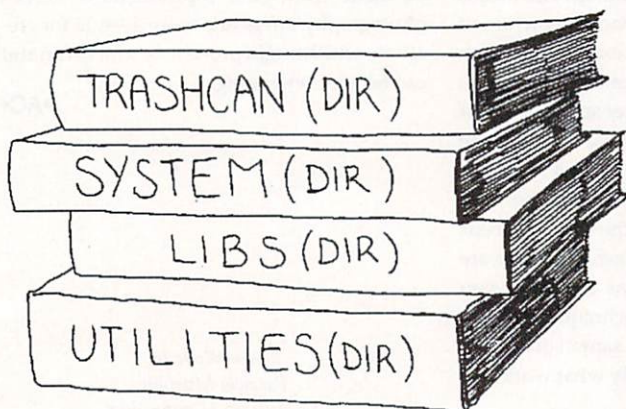 TRASHCAN (DIR)
SYSTEM (DIR)
LIBS (DIR)
UTILITIES (DIR)